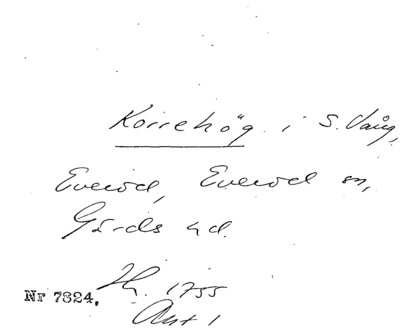 Korrehög i S. Vång,
Everöd, Everöd sn,
Gärds hd.
Nr 7824. H. 1755
Akt 1